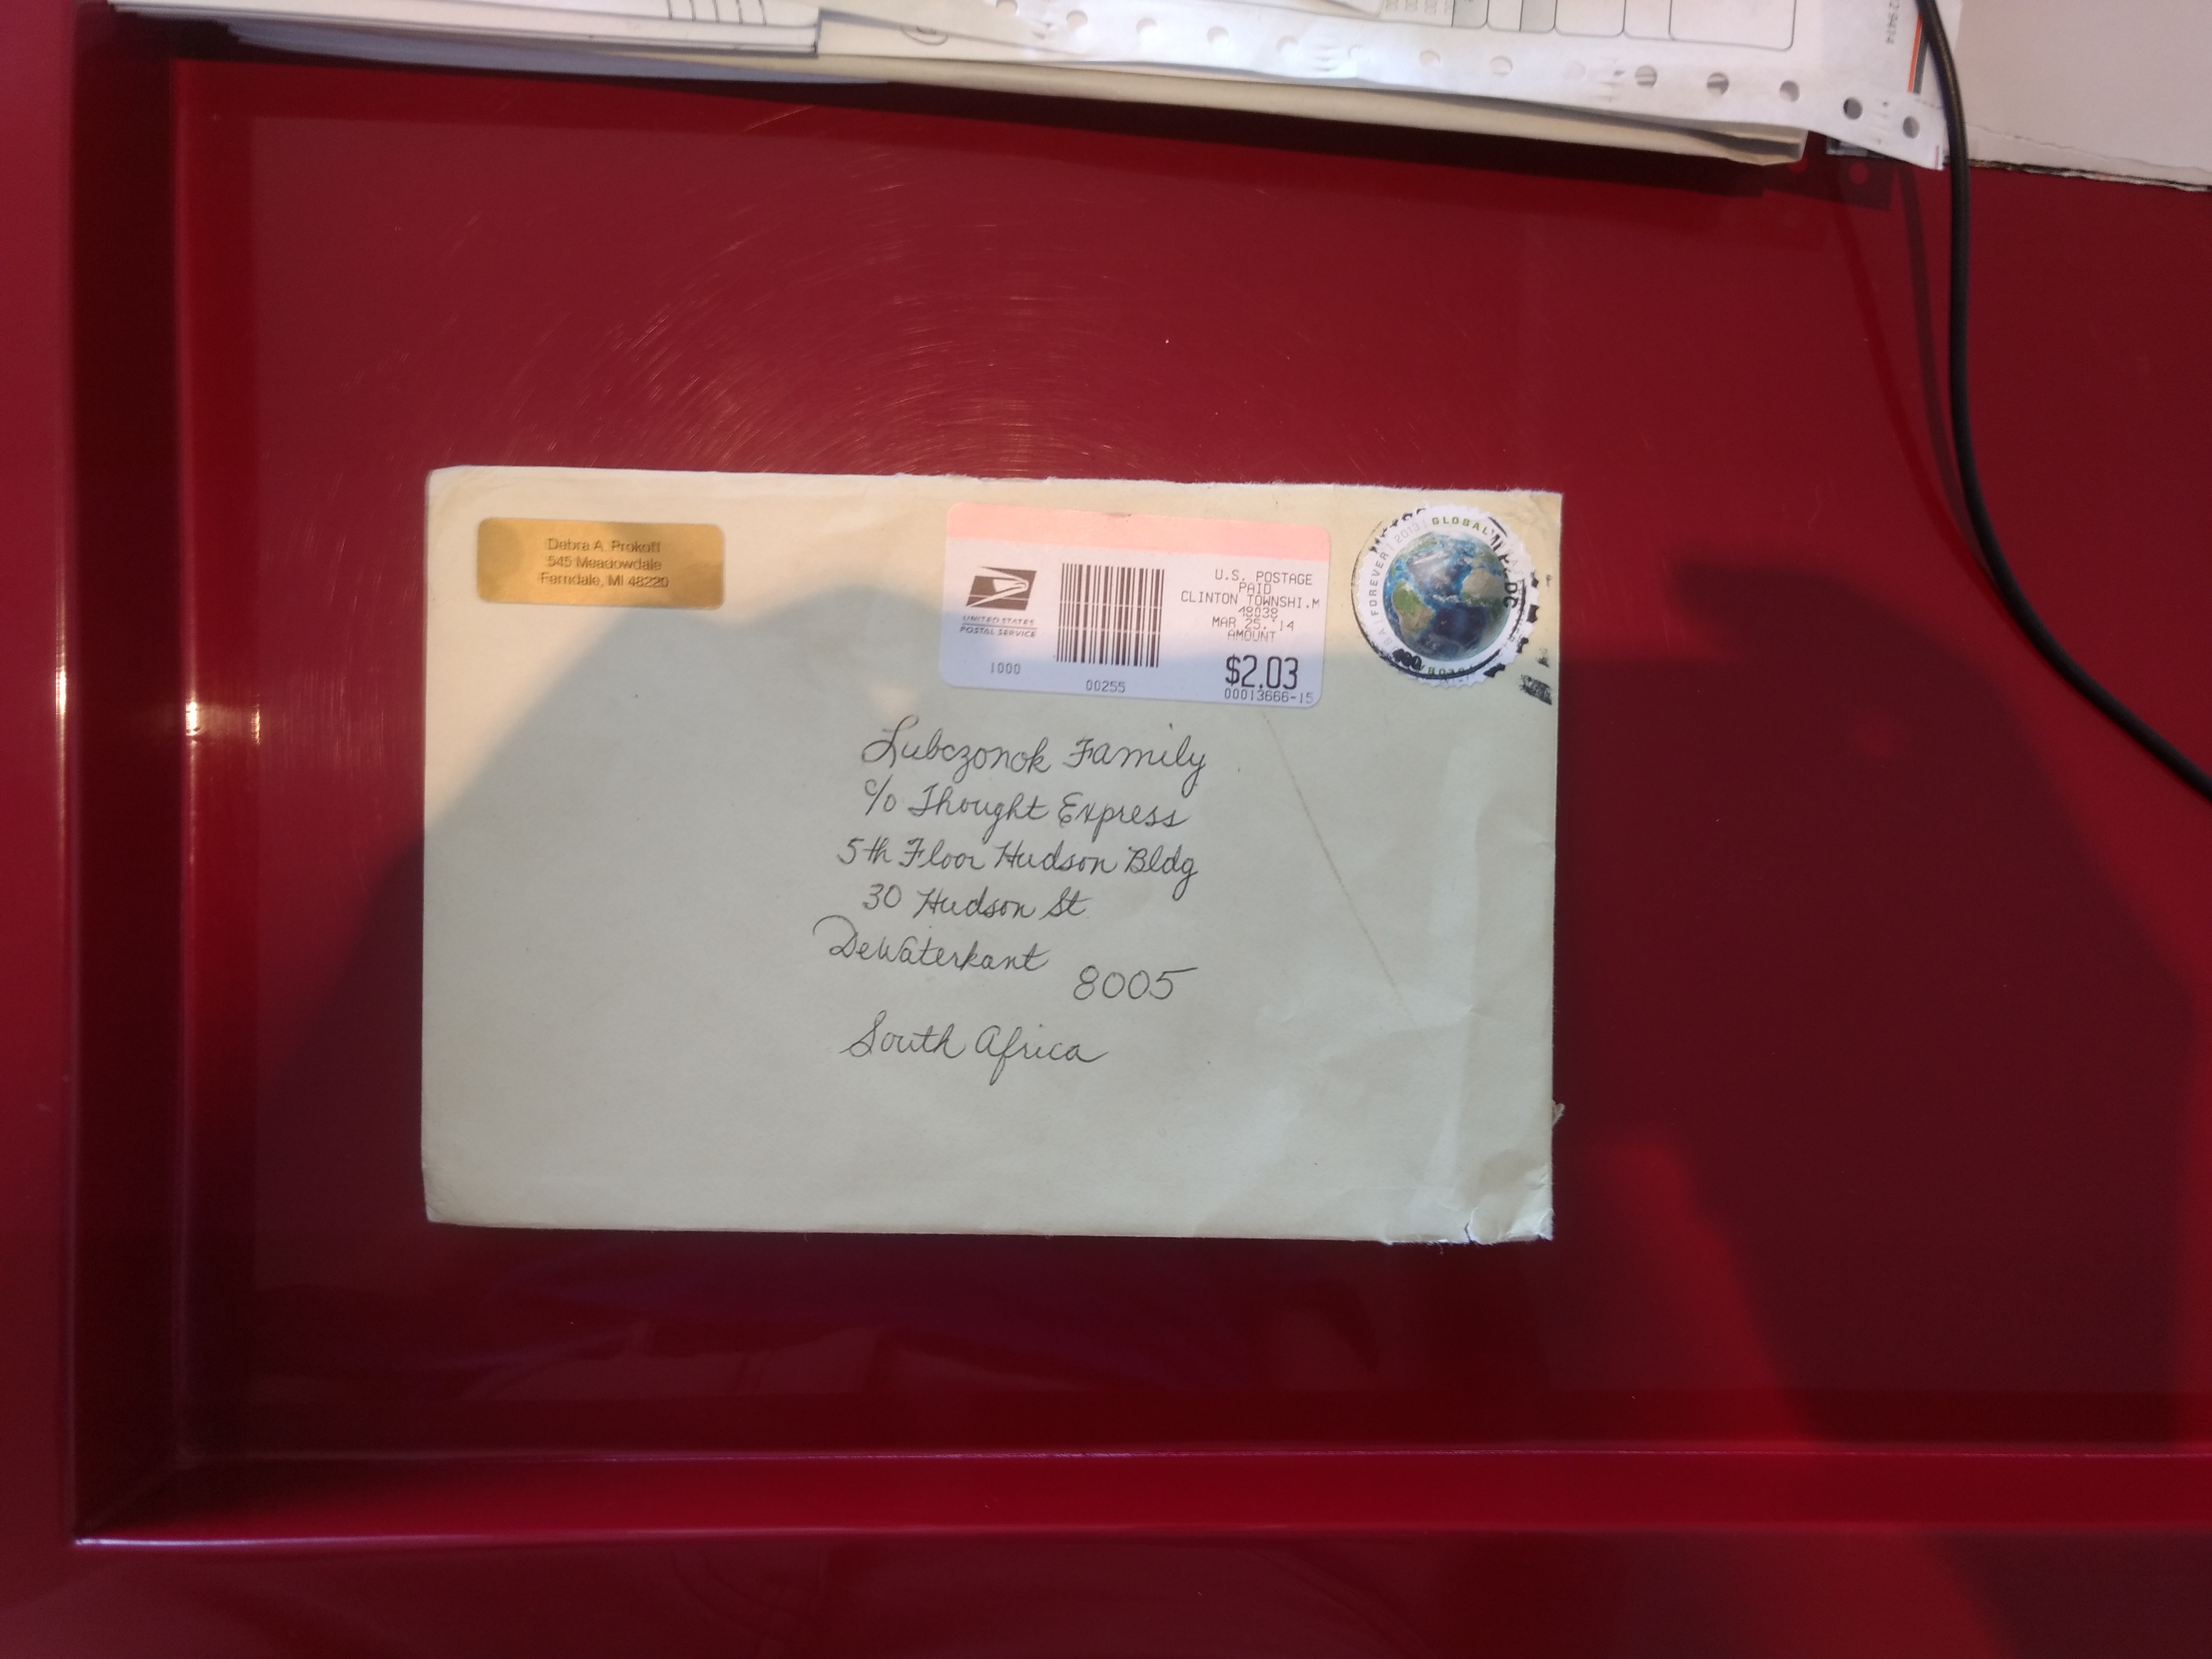 Debra A. Prokoff
545 Meadowdale
Ferndale, MI 48220
UNITED STATES
POSTAL SERVICE
1000
00255
U.S. POSTAGE
PAID
CLINTON TOWNSHI.M
48038
MAR 25. '14
AMOUNT
$2.03
00013666-15
GLOBAL
FOREVER
2013
Lubczonok Family
c/o Thought Express
5th Floor Hudson Bldg
30 Hudson St
DeWaterkant 8005
South Africa